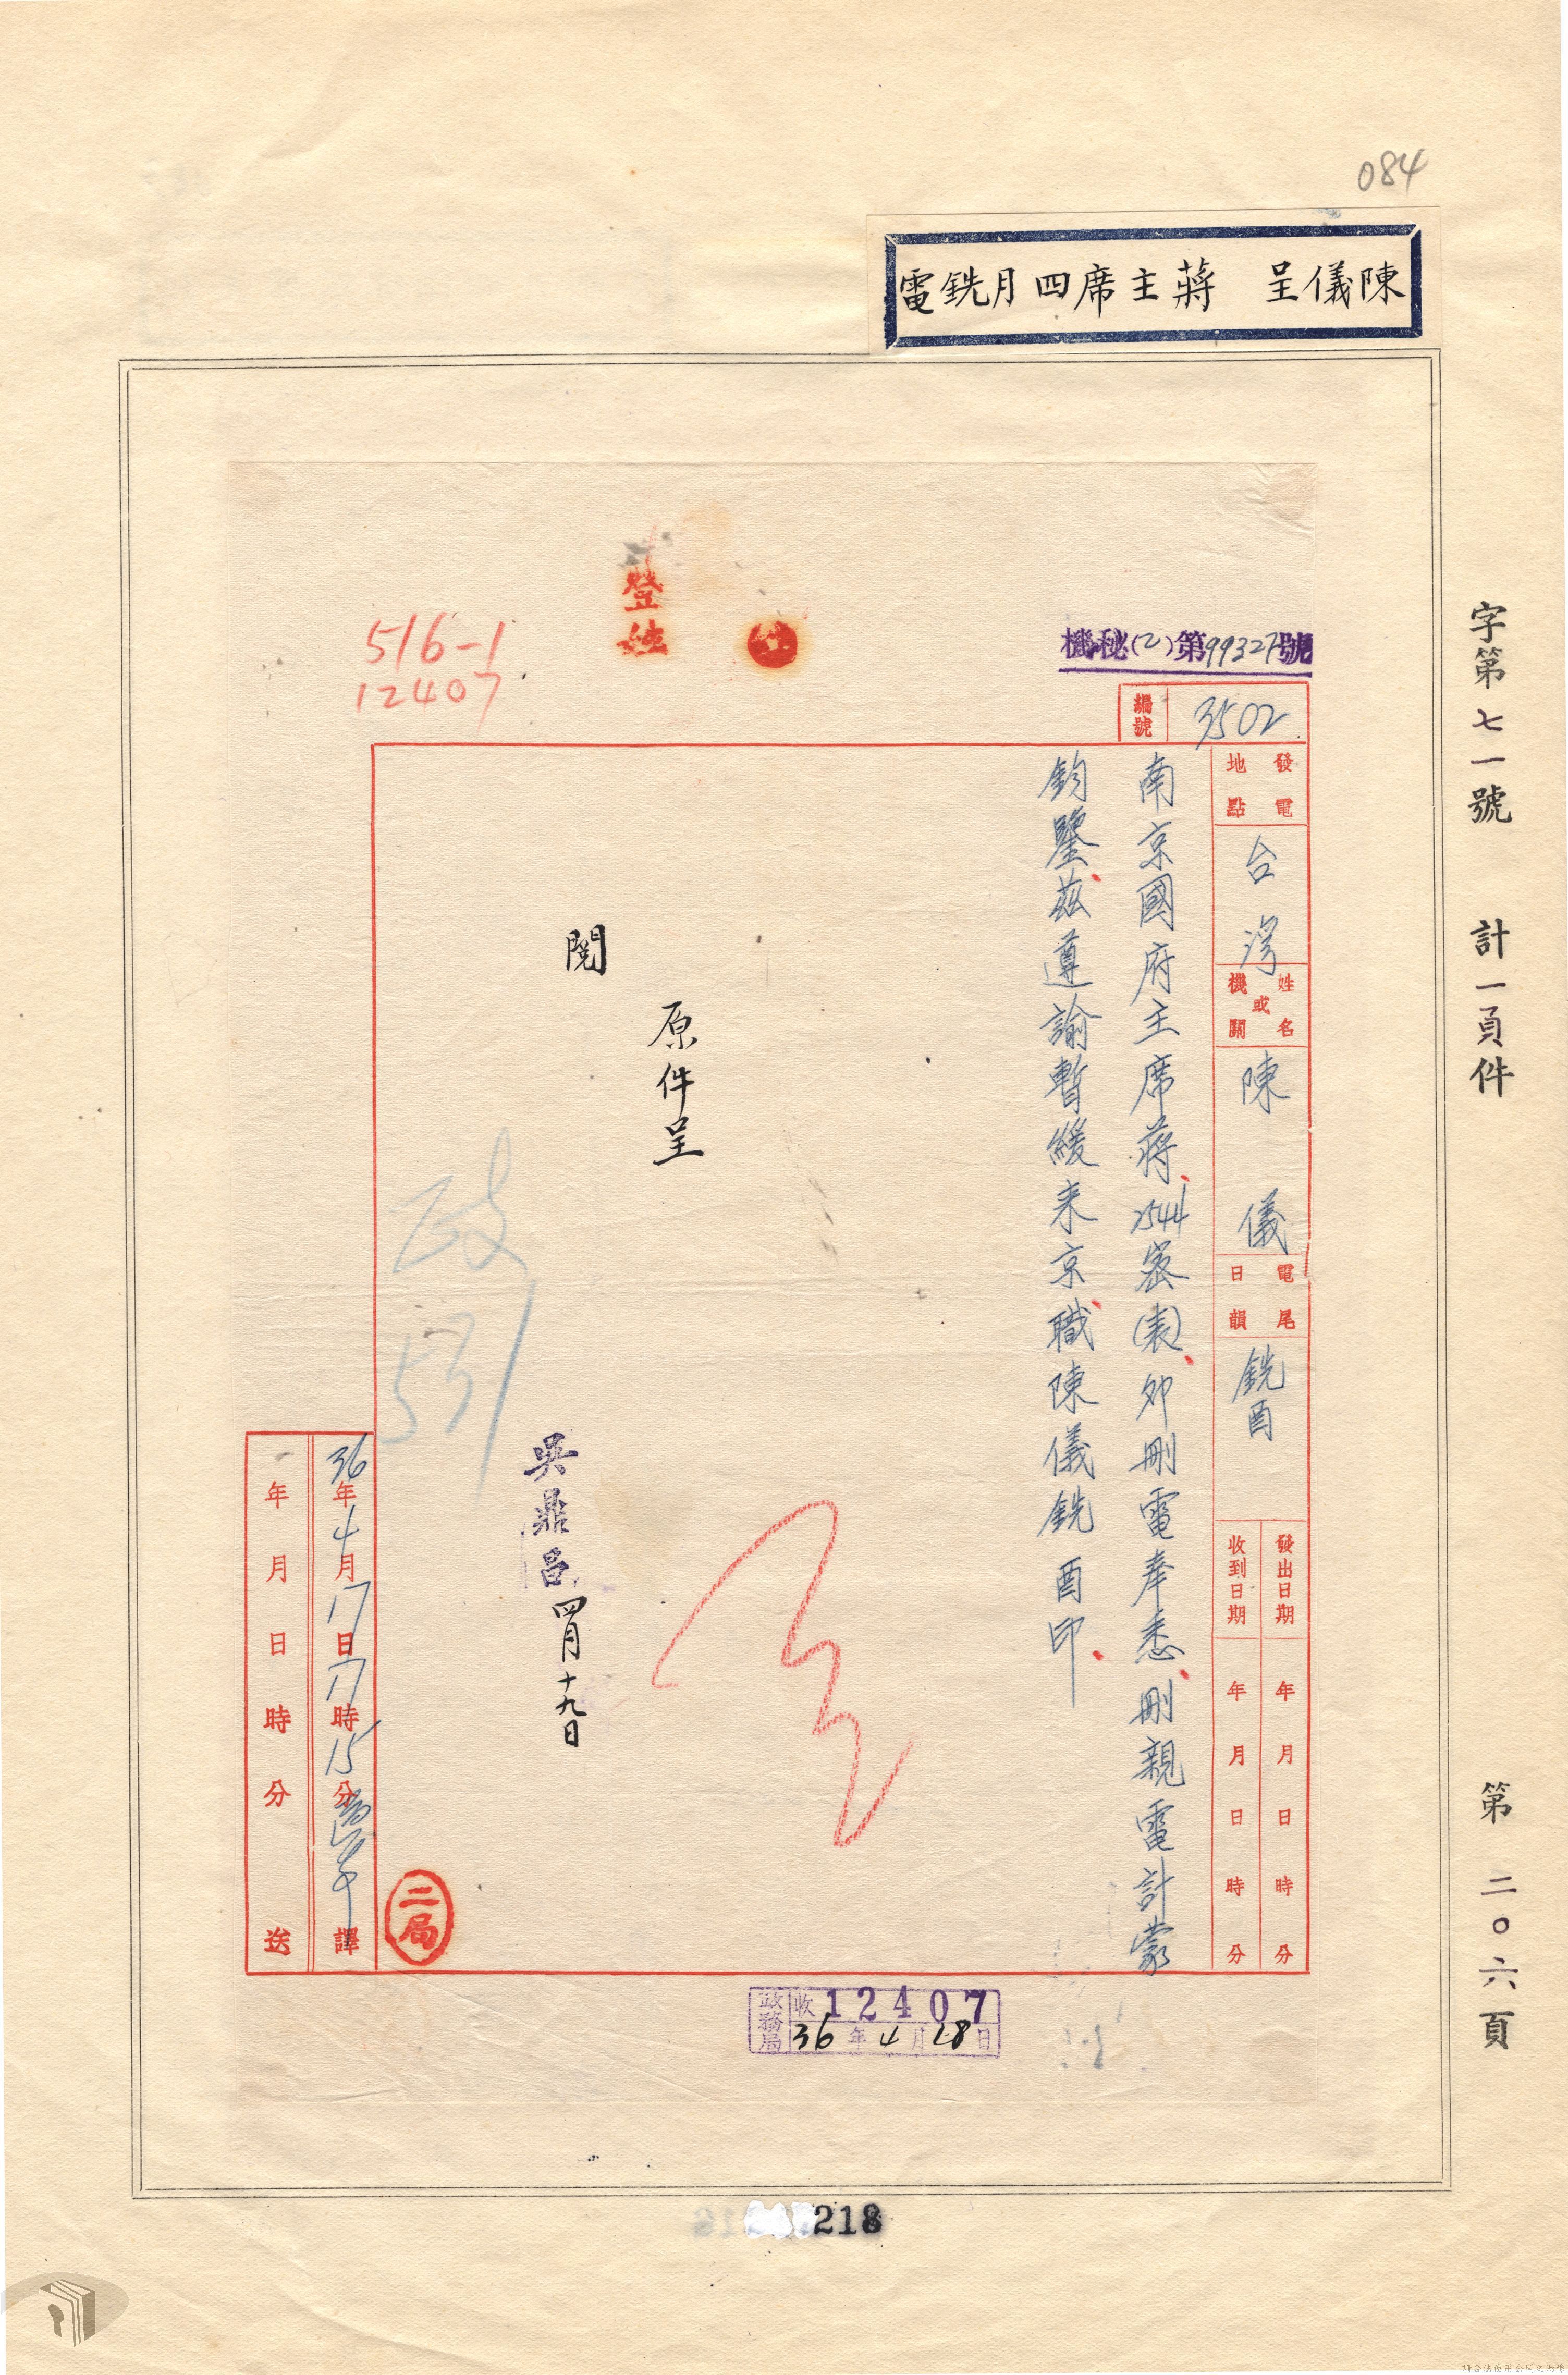 084
陳儀呈　蔣主席四月銑電
字第七一號　計一頁件　第二〇六頁
機秘(乙)第99327號
編號 3502
發電地點 台灣
姓名或機關 陳儀
電尾日韻 銑酉
發出日期 年 月 日 時 分
收到日期 年 月 日 時 分
南京國府主席蔣、2544密(表)、卯刪電奉悉、刪親電計蒙
鈞鑒、茲遵諭暫緩来京、職陳儀銑酉印、
登
516-1
12407
原件呈
閱
吳鼎昌 四月十九日
政
二局
36年4月17日17時15分 譯
年 月 日 時 分 送
政務局 收 12407
36年4月18日
218